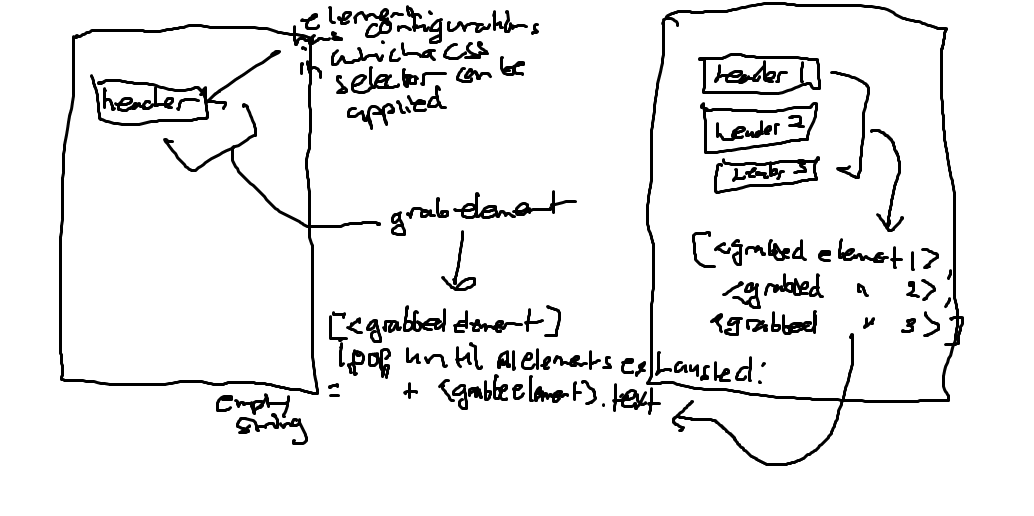 element
has configurations
in which a CSS
selector can be
applied
header
grab element
[<grabbed element>]
loop until all elements exhausted:
= + <grabbe element>.text
empty
string
header 1
header 2
header 3
[<grabbed element 1>,
<grabbed " 2>,
<grabbed " 3>]